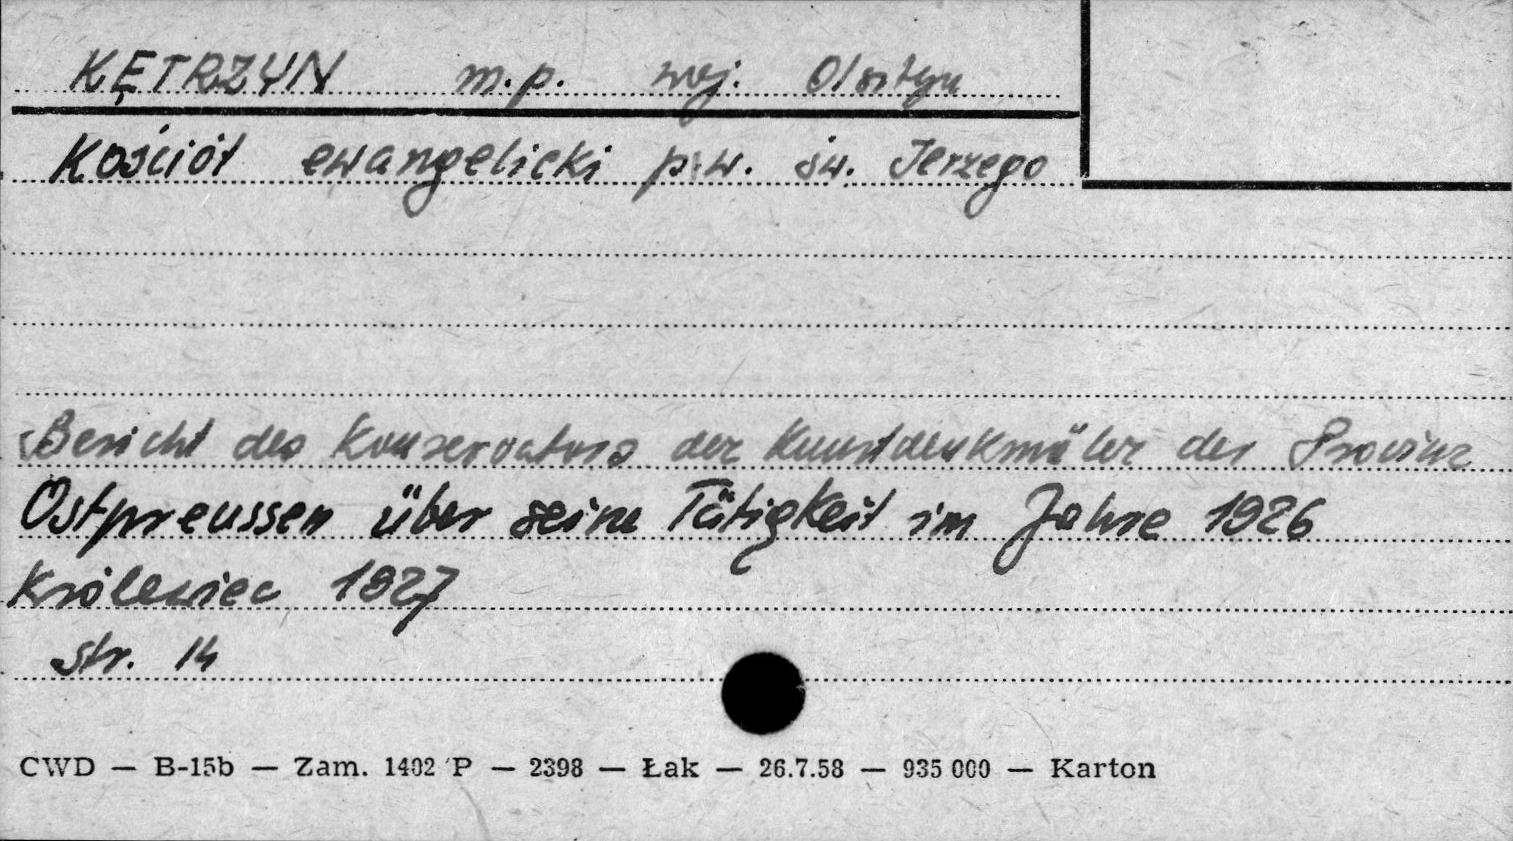 KĘTRZYN m.p. woj. Olsztyn
Kościół ewangelicki p.w. św. Jerzego
Bericht des Konservators der Kunstdenkmäler der Provinz
Ostpreussen über seine Tätigkeit im Jahre 1926
Królewiec 1927
str. 14
CWD — B-15b — Zam. 1402 P — 2398 — Łak — 26.7.58 — 935 000 — Karton